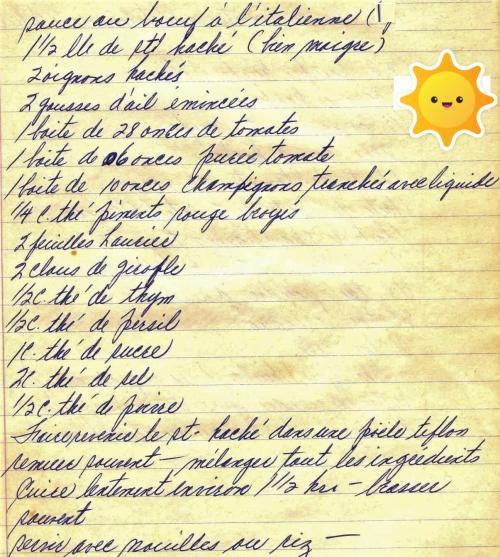 sauce au boeuf à l'italienne (1
1 1/2 lb de st haché (bien maigre)
2 oignons hachés
2 gousses d'ail émincées
1 boite de 28 onces de tomates
1 boite de 06 onces purée tomate
1 boite de 10 onces champignons tranchés avec liquide
1/4 c. thé piments rouge broyés
2 feuilles Laurier
2 clous de girofle
1/2 c. thé de thym
1/2 c. thé de persil
1 c. thé de sucre
2 c. thé de sel
1/2 c. thé de poivre
Faire revenir le st. haché dans une poële teflon
remuer souvent - mélanger tout les ingrédients
Cuire lentement environ 1 1/2 hrs - brasser
souvent
servir avec nouilles ou riz -